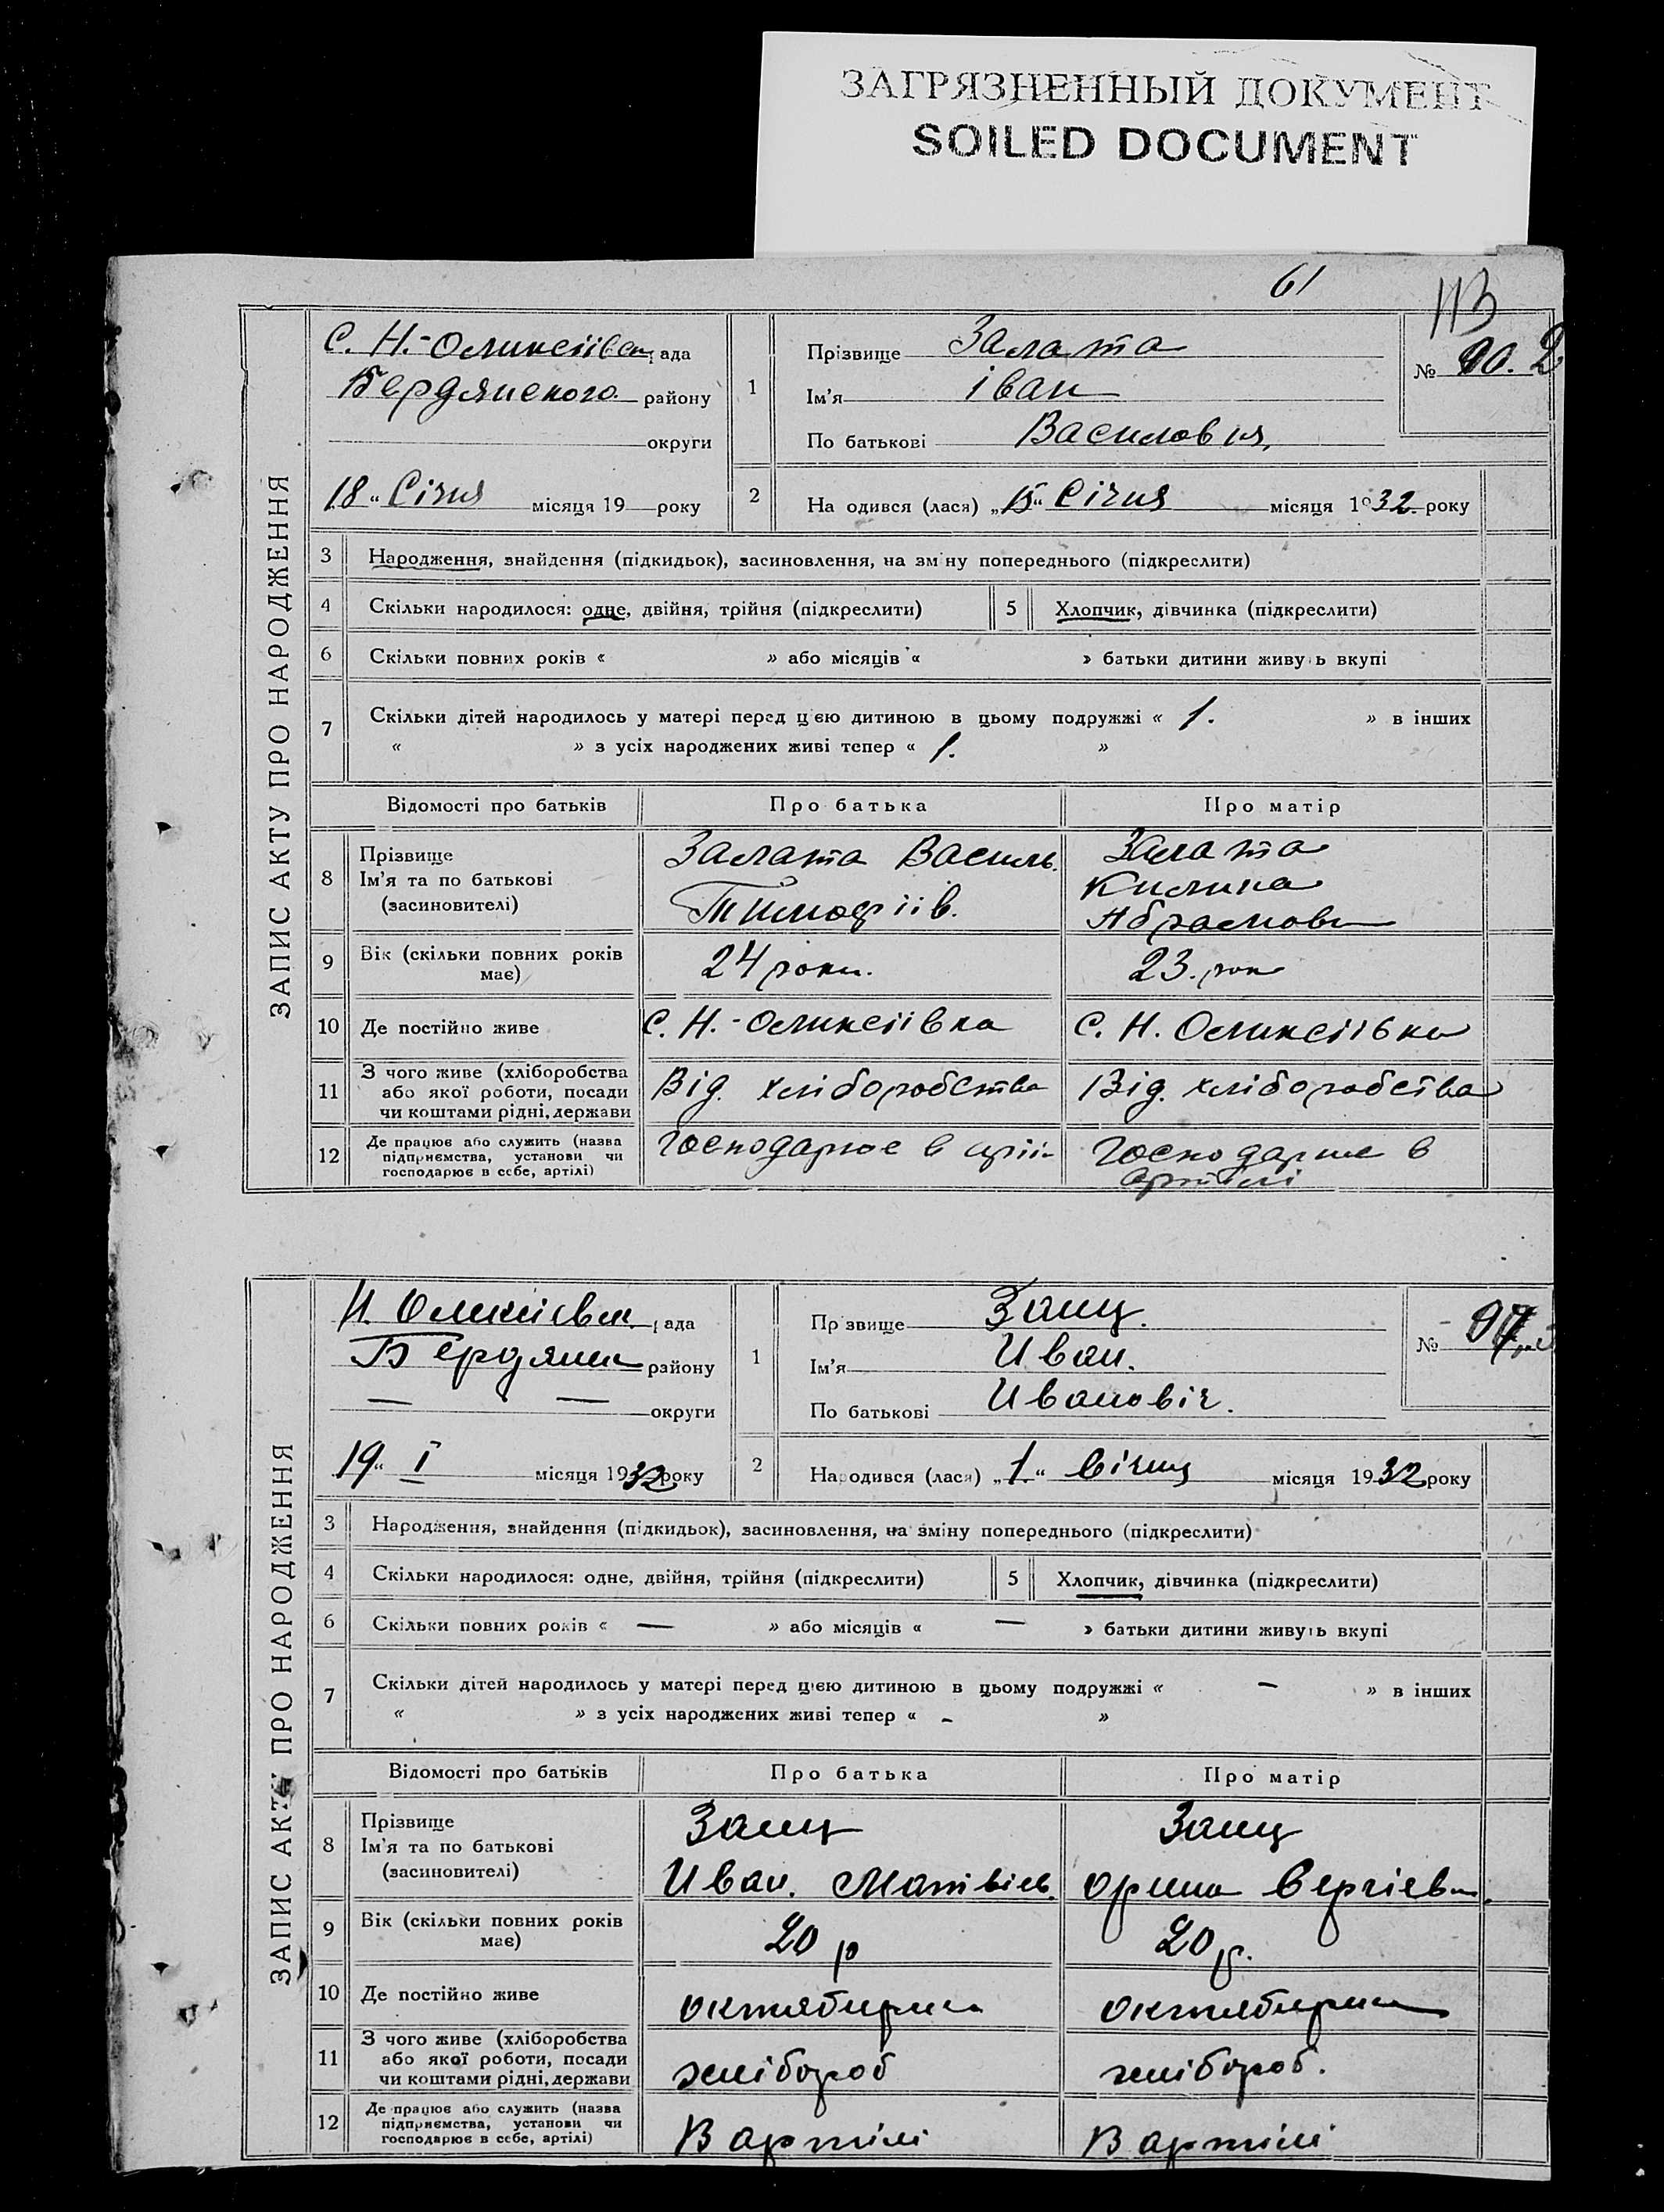 ЗАГРЯЗНЕННЫЙ ДОКУМЕНТ
SOILED DOCUMENT
61
113
ЗАПИС АКТУ ПРО НАРОДЖЕННЯ
С. Н.-Оликсіївськ рада
Бердянського району
округи
18 „ Січня місяця 19 року
1
Прізвище Залата
Ім'я Іван
По батькові Василовия
№
2
На одився (лася) „15“ Січня місяця 1932 року
3 Народження, знайдення (підкидьок), засиновлення, на зміну попереднього (підкреслити)
4 Скільки народилося: одне, двійня, трійня (підкреслити) 5 Хлопчик, дівчинка (підкреслити)
6 Скільки повних років « » або місяців « » батьки дитини живуть вкупі
7 Скільки дітей народилось у матері перед цією дитиною в цьому подружжі « 1. » в інших
« » з усіх народжених живі тепер « 1. »
Відомості про батьків Про батька Про матір
8 Прізвище
Ім'я та по батькові
(засиновителі)
Залата Василь
Тимофіїв.
Залата
Килина
Абрамовн
9 Вік (скільки повних років
має)
24 роки. 23. рок
10 Де постійно живе С. Н.-Оликсіївка С. Н. Оликсіївка
11 З чого живе (хліборобства
або якої роботи, посади
чи коштами рідні, держави
Від. хліборобства Від. хліборобства
12 Де працює або служить (назва
підприємства, установи чи
господарює в себе, артілі)
Господарює в Господарює в
артілі
ЗАПИС АКТУ ПРО НАРОДЖЕННЯ
Н. Олексієвск. рада
Бердянськ району
— — округи
19 „ I місяця 1932 року
1
Прізвище Заяц.
Ім'я Иван.
По батькові Ивановіч.
№
2
Народився (лася) „1“ Січня місяця 1932 року
3 Народження, знайдення (підкидьок), засиновлення, на зміну попереднього (підкреслити)
4 Скільки народилося: одне, двійня, трійня (підкреслити) 5 Хлопчик, дівчинка (підкреслити)
6 Скільки повних років « — » або місяців « — » батьки дитини живуть вкупі
7 Скільки дітей народилось у матері перед цією дитиною в цьому подружжі « – » в інших
« » з усіх народжених живі тепер « – »
Відомості про батьків Про батька Про матір
8 Прізвище
Ім'я та по батькові
(засиновителі)
Заяц
Иван. Матвіев.
Заяц
Орина Сергієвн.
9 Вік (скільки повних років
має)
20 р 20 р.
10 Де постійно живе
11 З чого живе (хліборобства
або якої роботи, посади
чи коштами рідні, держави
хлібороб хлібороб.
12 Де працює або служить (назва
підприємства, установи чи
господарює в себе, артілі)
В артілі В артілі